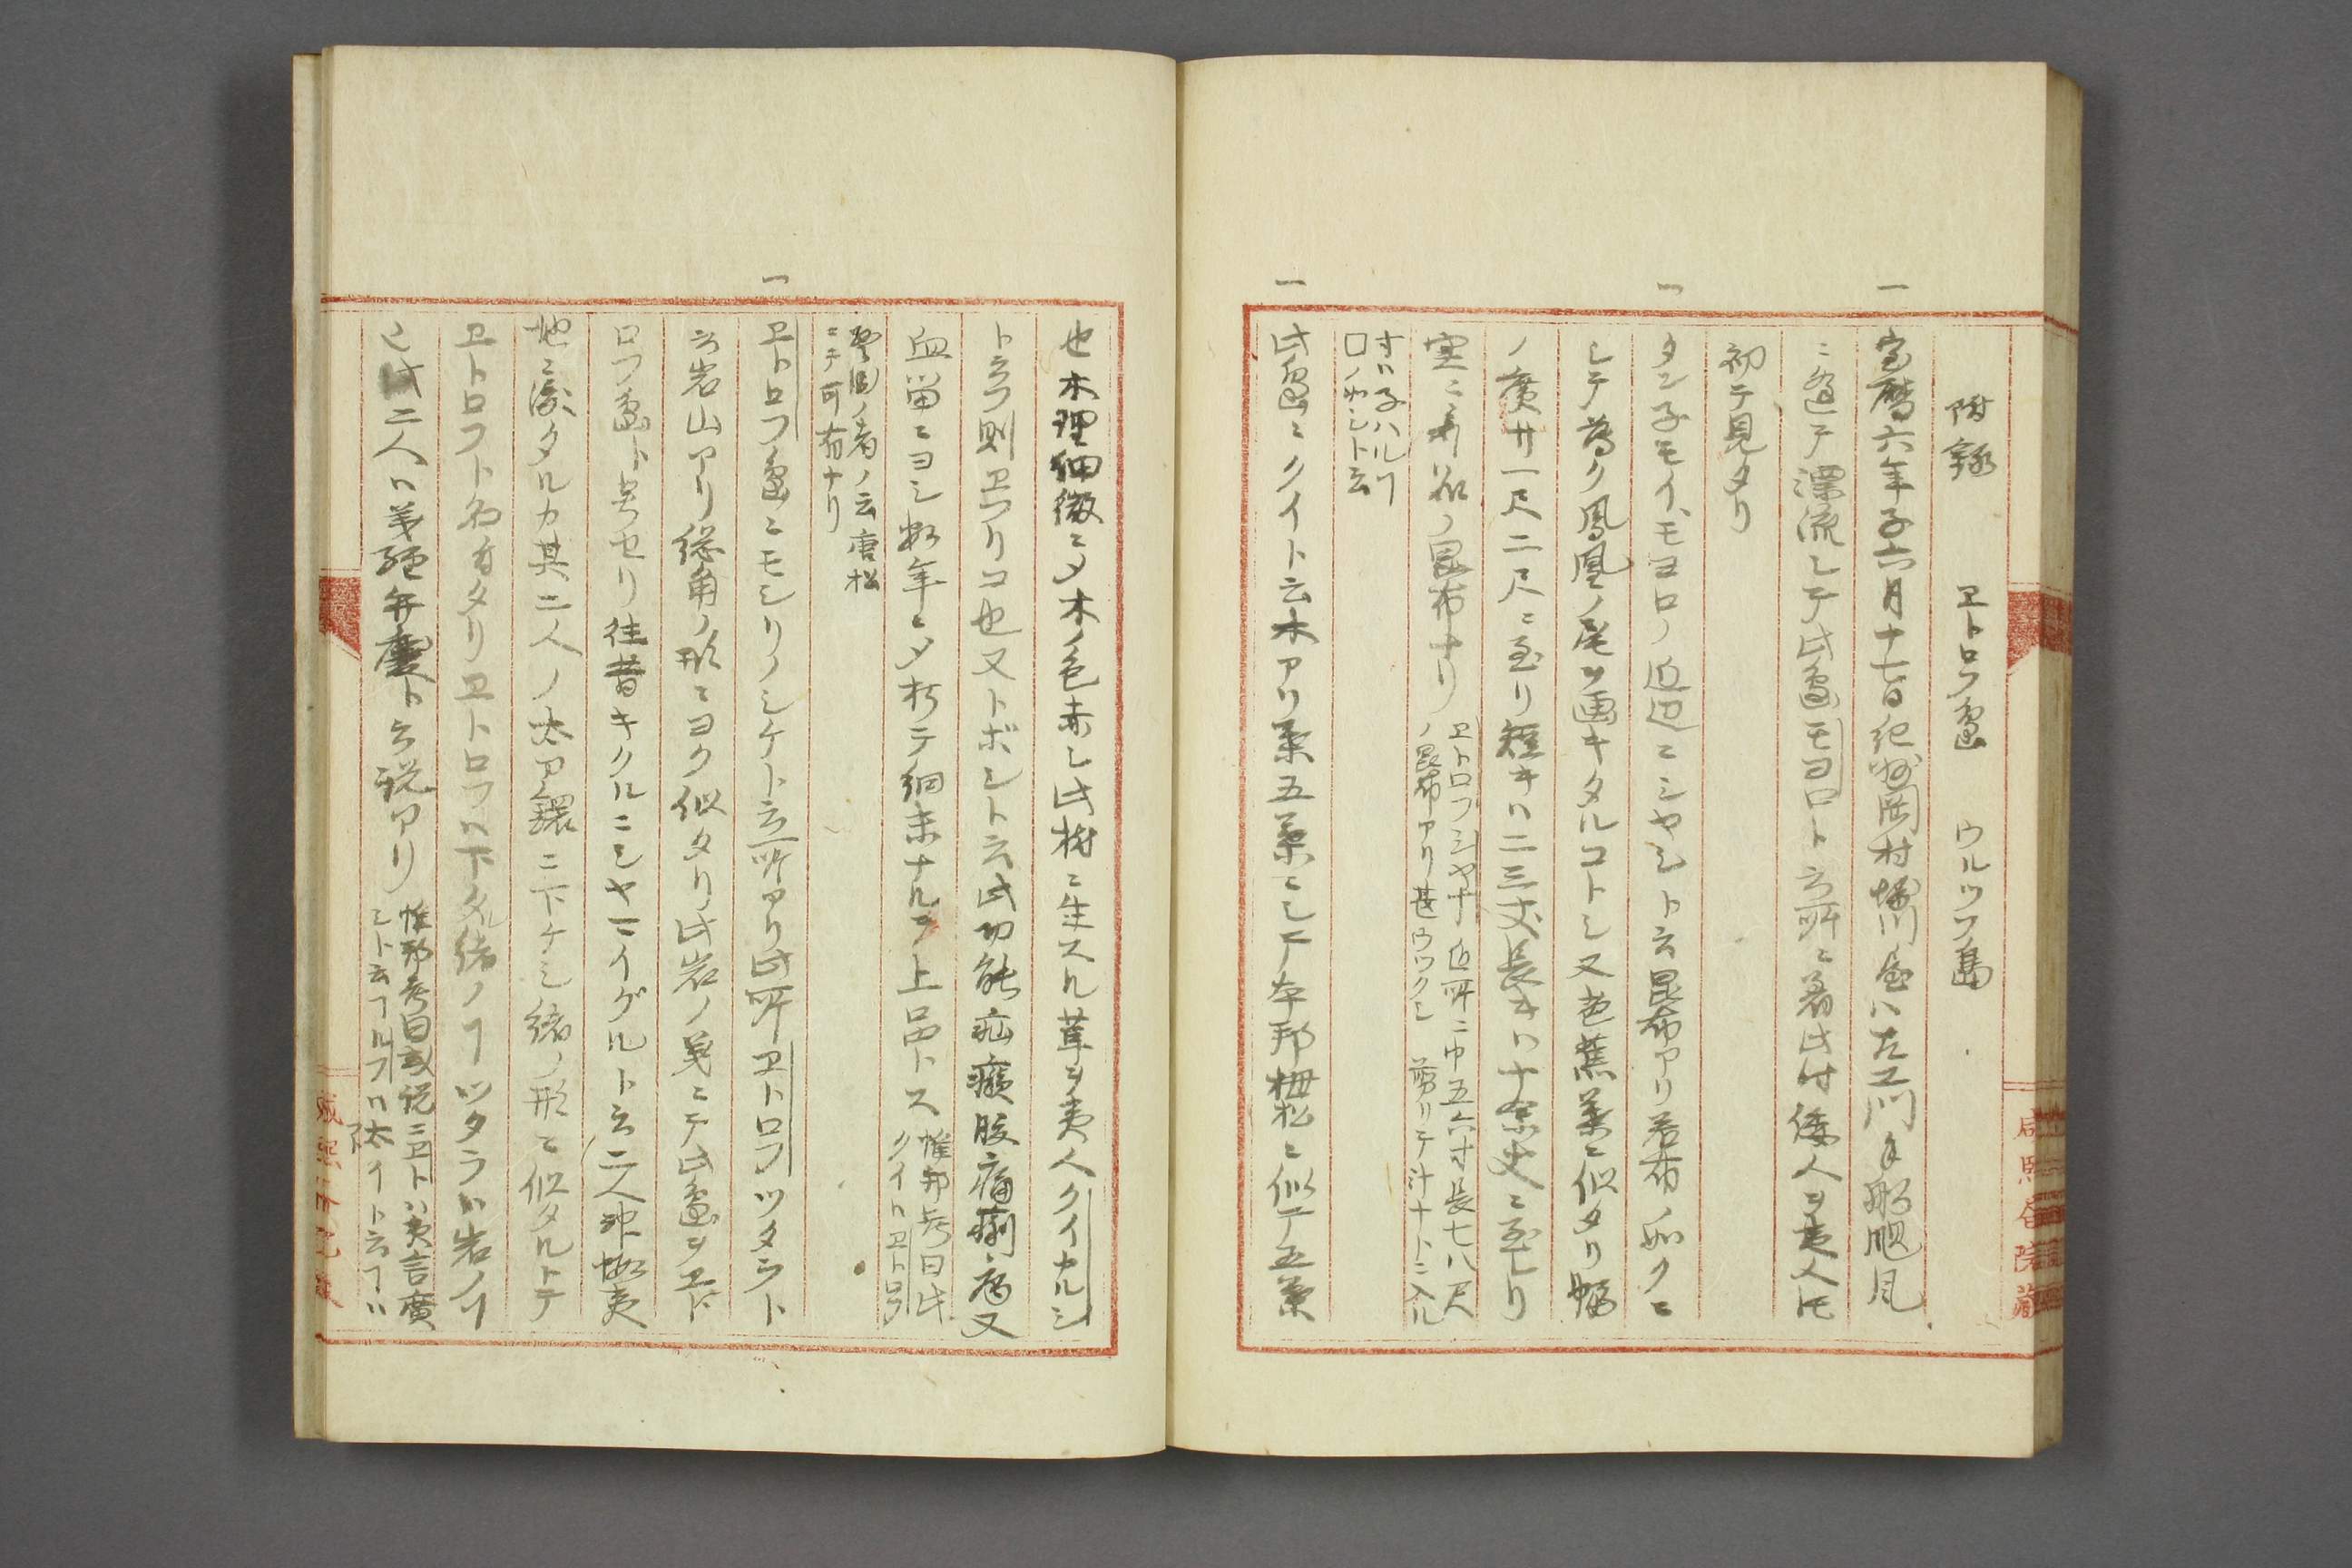 附録 ヱトロフ島 ウルツフ島
一 宝暦六年子六月十七日紀州岡村堀川屋八左エ門手船颶風
ニ逢テ漂流シテ此島モヨロト云所ニ着此時倭人ヲ夷人モ
初テ見タリ
一 タン子モイ、モヨロノ近辺ニシヤシト云昆布アリ若布ノ如クニ
シテ薄ク鳳凰ノ尾ヲ画キタルコトシ又芭蕉葉ニ似タリ幅
ノ廣サ一尺二尺ニ至リ短キハ二三丈長キハ十余丈ニ至レリ
実ニ希ナル昆布ナリ
ヱトロフシヤナ近所ニ巾五六寸長七八尺
ノ昆布アリ甚ウツクシ 剪リテ汁ナトニ入ル
オハ子ハルヿ
ロノ如シト云
一 此島ニクイト云木アリ葉五葉ニシテ本邦栂松ニ似テ五葉
也木理細微ニメ木ノ色赤シ此樹ニ生スル茸ヲ夷人クイカルシ
ト云フ則エブリコ也又トボシト云此功能疝癪腹痛痢病又
血留ニヨシ数年ニメ朽テ細末ナルヲ上品トス
惟邦考曰此
クイハヱトロフ
蟹国ノ者ノ云唐松
ニテ可有ナリ
一 ヱトロフ島ニモシリノシケト云所アリ此所ヱトロフツタラト
云岩山アリ総角ノ形ニヨク似タリ此岩ノ義ニテ此島ヲヱト
ロフ島ト号セリ往昔キクルニシヤマイグルト云二人ノ神 蝦夷
地ニ渡タルカ其二人ノ太刀ノ鐶ニ下ケシ緒ノ形ニ似タルトテ
ヱトロフト名付タリヱトロフハ下タル緒ノヿツタラハ岩ノヿ
也此二人ハ義経弁慶ト云説アリ
惟邦考曰或説ニヱトハ夷言廣
シト云ヿルフハ太イト云ヿハ